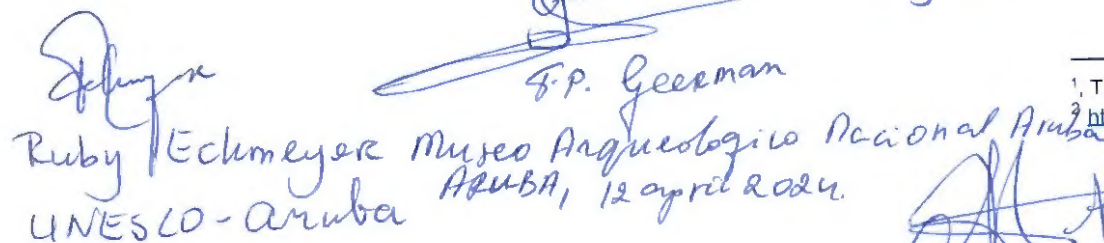 F.P. Geerman
1, T
2 ht
Ruby Eckmeyer Museo Arqueologico Nacional Aruba
UNESCO-aruba ARUBA, 12 april 2024.